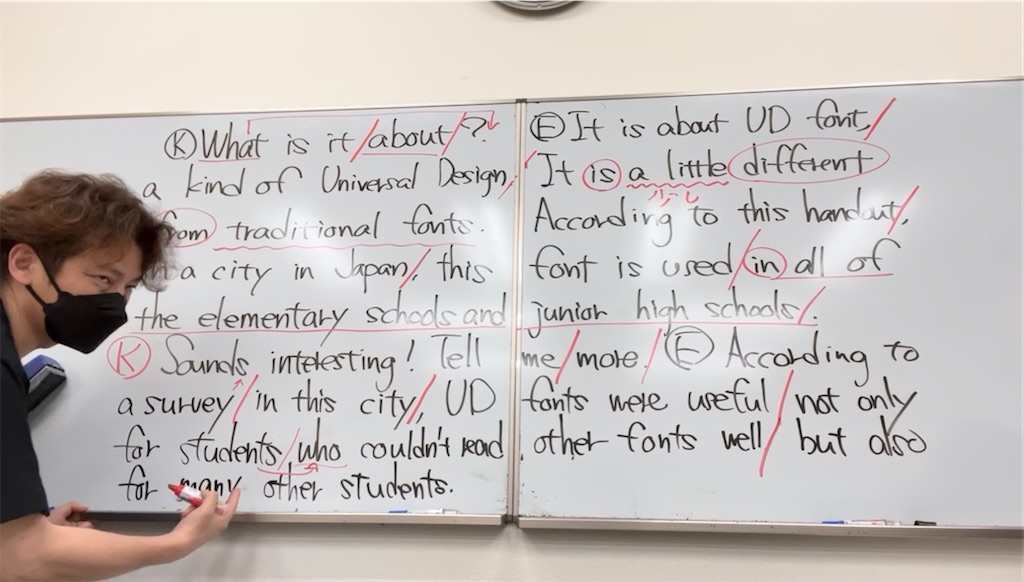 Ⓚ What is it / about / ? Ⓔ It is about UD font, /
a kind of Universal Design, / It is a little different
from traditional fonts. According to this handout, /
a city in Japan, / this font is used / in all of
the elementary schools and junior high schools /.
Ⓚ Sounds interesting! Tell me / more. / Ⓔ According to
a survey / in this city, / UD fonts were useful / not only
for students / who couldn't read other fonts well / but also
for many other students.